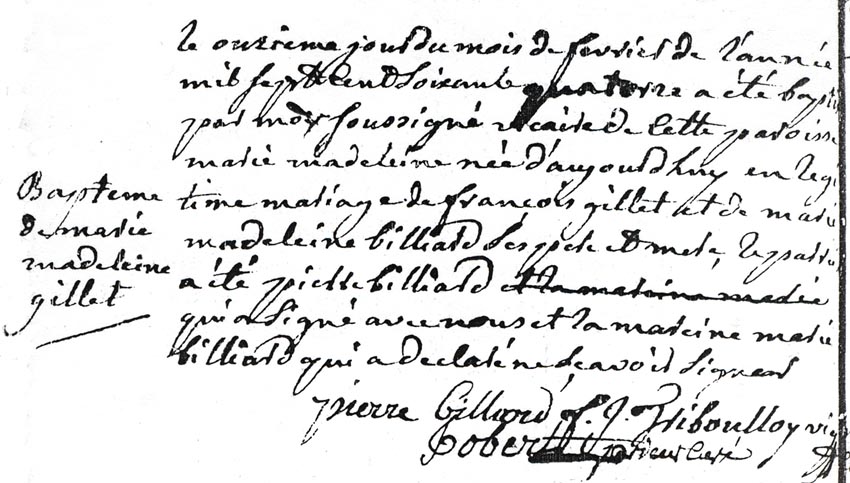 Bapteme
de marie
madeleine
gillet
le onzieme jour du mois de fevrier de l'année
mil sept cent soixante quatorze a été bapti
par moy soussigné vicaire de cette paroisse
marie madeleine née d'aujourd'huy en legi
time mariage de françois gillet et de marie
madeleine billiard ses pere et mere, le parein
a été pierre billiard et la mareine marie
qui a signé avec nous et la mareine marie
billiard qui a declaré ne scavoir signer
pierre billiard f. J. Triboulloy
pobert prieur curé